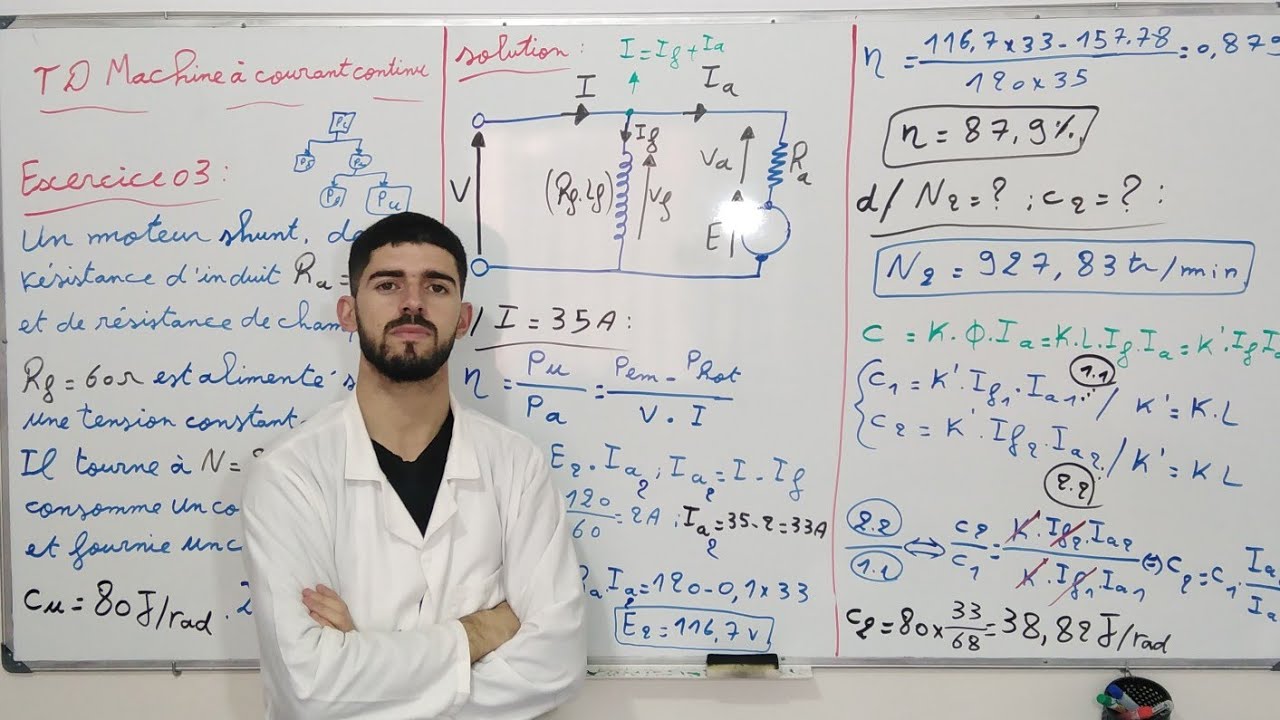 TD Machine à courant continu
Exercice 03 :
Un moteur shunt, de
résistance d'induit Ra =
et de résistance de champ
Rf = 60Ω est alimenté s
une tension constant
Il tourne à N =
consomme un co
et fournie un c
Cu = 80 J/rad.
Pu
solution :
I = If + Ia
I
Ia
If
V
(Rf, Lf)
Vf
Va
Ra
E
/ I = 35A :
η = Pu / Pa = Pem - PRot / V . I
E2 . Ia2 ; Ia2 = I - If
120 / 60 = 2A ; Ia2 = 35 - 2 = 33A
Ra Ia2 = 120 - 0,1 x 33
E2 = 116,7 v
η = 116,7 x 33 - 157,78 / 120 x 35 = 0,879
η = 87,9 %
d/ N2 = ? ; C2 = ? :
N2 = 927,83 tr/min
C = K.Φ.Ia = K.L.If.Ia = K'.If.I
C1 = K'.If1.Ia1 / K' = K.L
1.1
C2 = K'.If2.Ia2 / K' = KL
2.2
2.2 / 1.1 ⟺ C2 / C1 = K'.If2.Ia2 / K'.If1.Ia1 ⟺ C2 = C1 . Ia / Ia
C2 = 80 x 33 / 68 = 38,82 J/rad